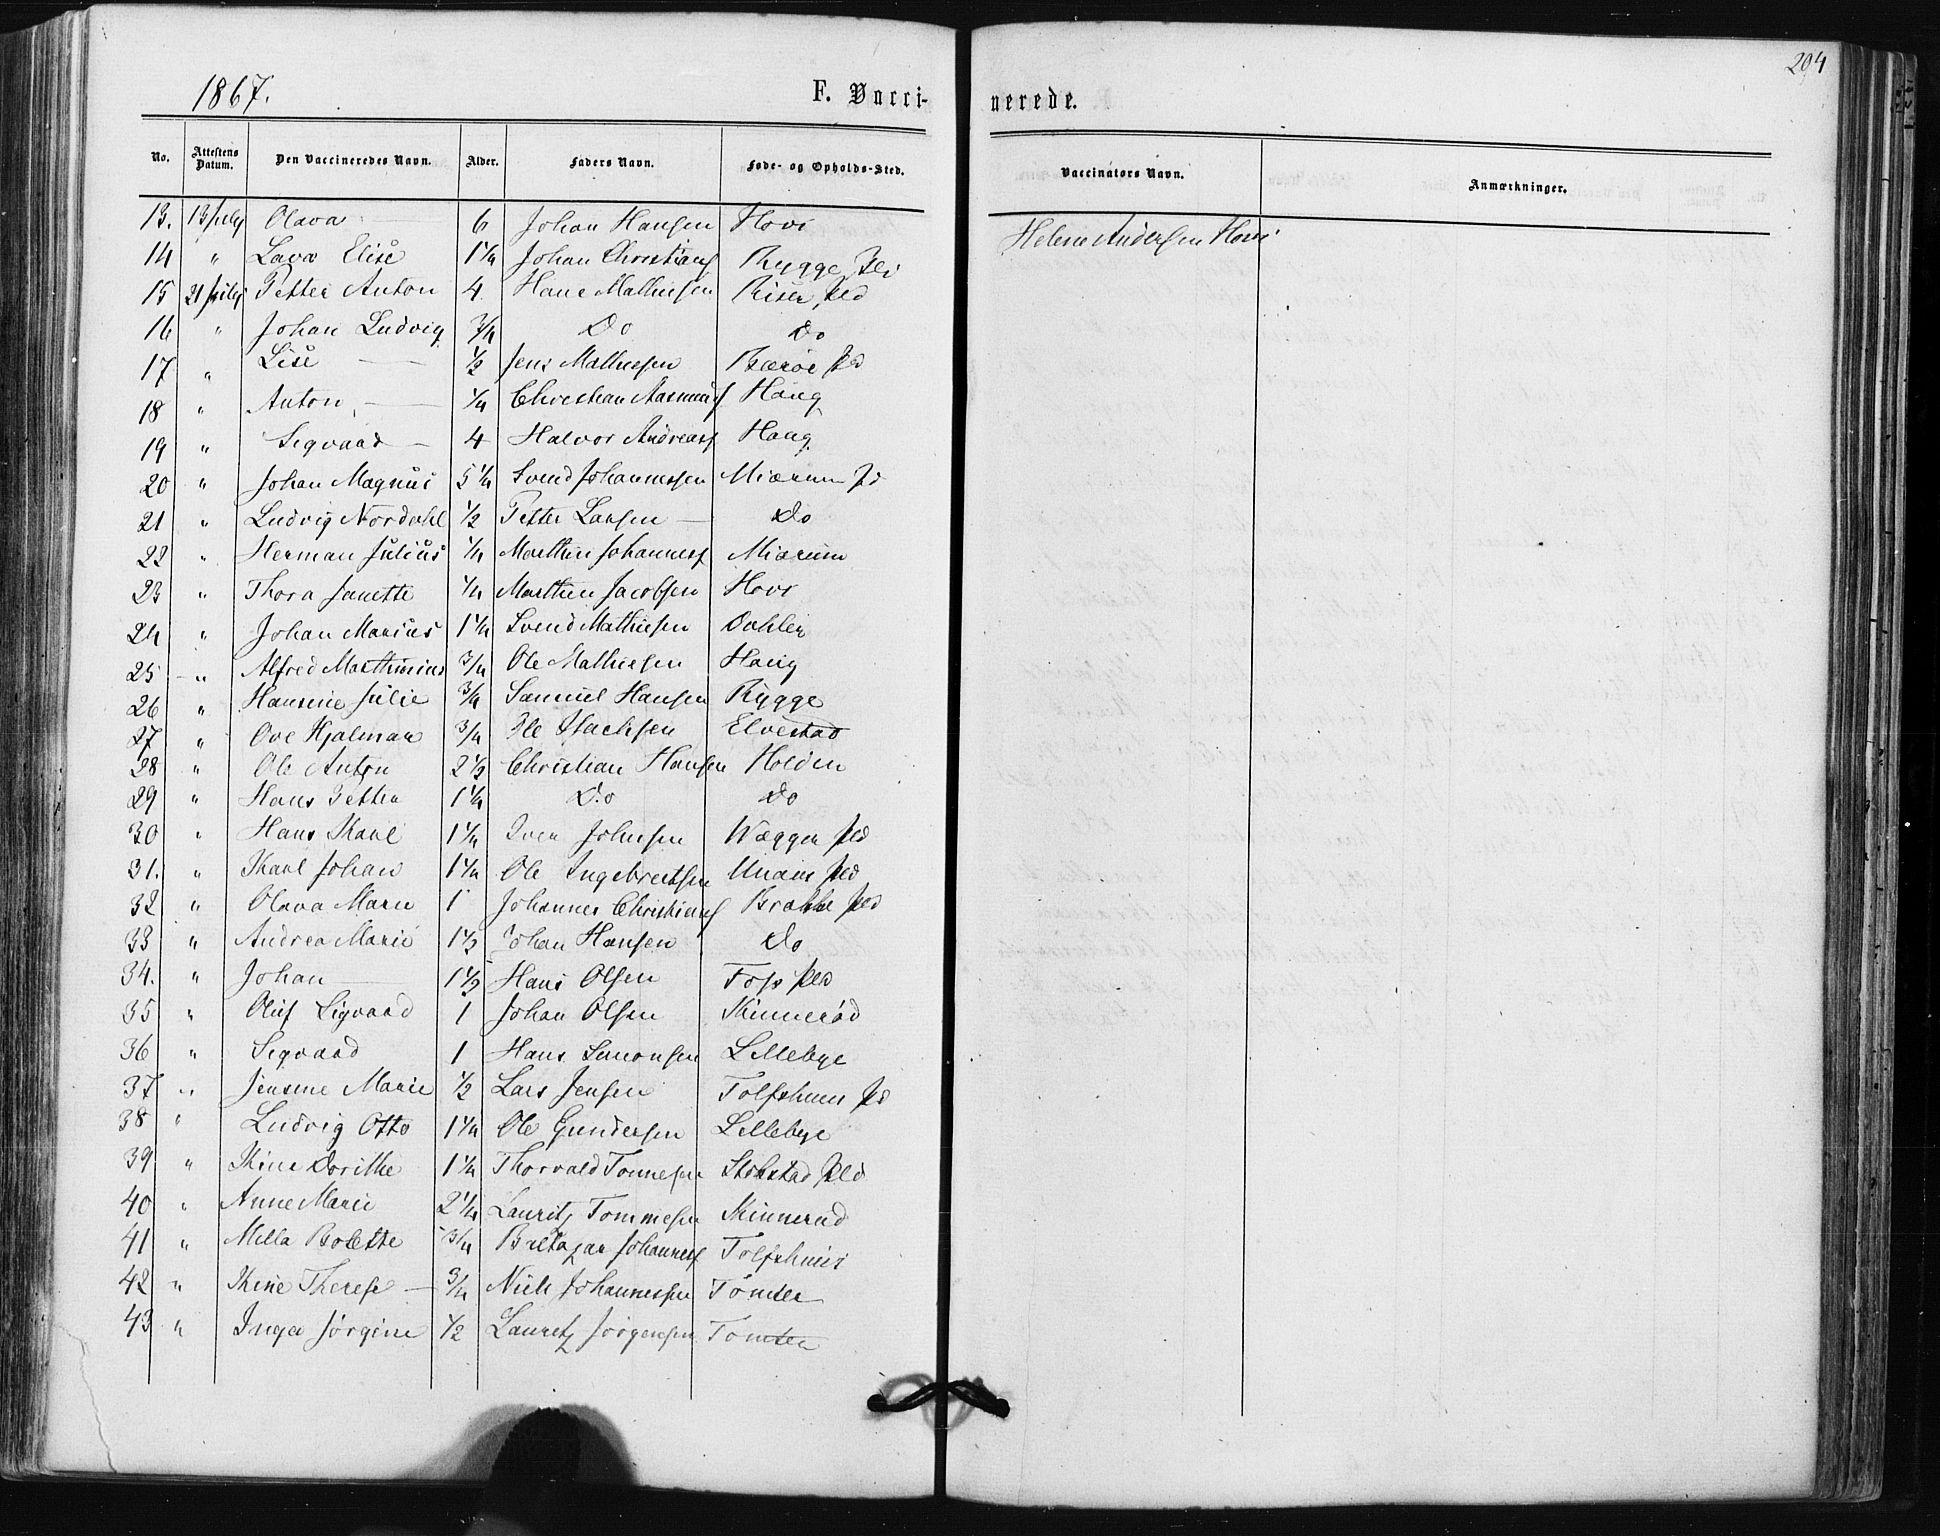 1867.
F. Vacci-
nerede.
204
No. Attestens Datum. Den Vaccineredes Navn. Alder. Faders Navn. Føde- og Opholds-Sted. Vaccinators Navn. Anmærkninger.
13. 13 July Olava 6 Johan Hansen Hovi Helene Andersen Hovi
14 " Lava Elise 1 1/4 Johan Christians Rygge
15 21 July Petter Anton 4 Hans Mathiesen
16 " Johan Ludvig 3/4 Do Do
17 " Lise 1/2 Jens Mathiesen
18 " Anton 1/4 Christian Haug
19 " Sigvaad 4 Halvor Andreass Haug
20 " Johan Magnus 5 1/4 Svend Johannessen Miærum
21 " Ludvig Nordahl 1/2 Petter Larsen Do
22 " Herman Julius 1/4 Marthin Johanness Miærum
23 " Thora Janette 1/4 Marthin Jacobsen Hovi
24 " Johan Marius 1 1/4 Svend Mathiesen Dahler
25 " Alfred Marthinius 3/4 Ole Mathiesen Haug
26 " Hansine Julie 3/4 Samuel Hansen Rygge
27 " Ove Hjalmar 3/4 Ole Elvestad
28 " Ole Anton 2 1/2 Christian Hansen Holden
29 " Hans Petter 1 1/4 Do Do
30 " Hans Karl 1 1/4 Iver Johnsen
31. " Karl Johan 1 1/4 Ole Ingebretsen
32 " Olava Marie 1 Johannes Christians Brakke
33 " Andrea Marie 1 1/2 Johan Hansen Do
34. " Johan 1 1/2 Hans Olsen
35 " Oluf Sigvaad 1 Johan Olsen Kinnerød
36 " Sigvaad 1 Hans Simonsen Lillebye
37 " Jensine Marie 1/2 Lars Jensen
38 " Ludvig Otto 1 1/4 Ole Gundersen Lillebye
39 " Kine Dorithe 1 1/4 Thorvald Tonnesen
40 " Anne Marie 2 1/4 Lauritz Tommesen Kinnerud
41 " Milla Bolette 3/4 Baltazar Johanness
42 " Kine Therese 3/4 Niels Johannessen Tomter
43 " Inga Jørgine 1/2 Lauritz Jørgensen Tomter